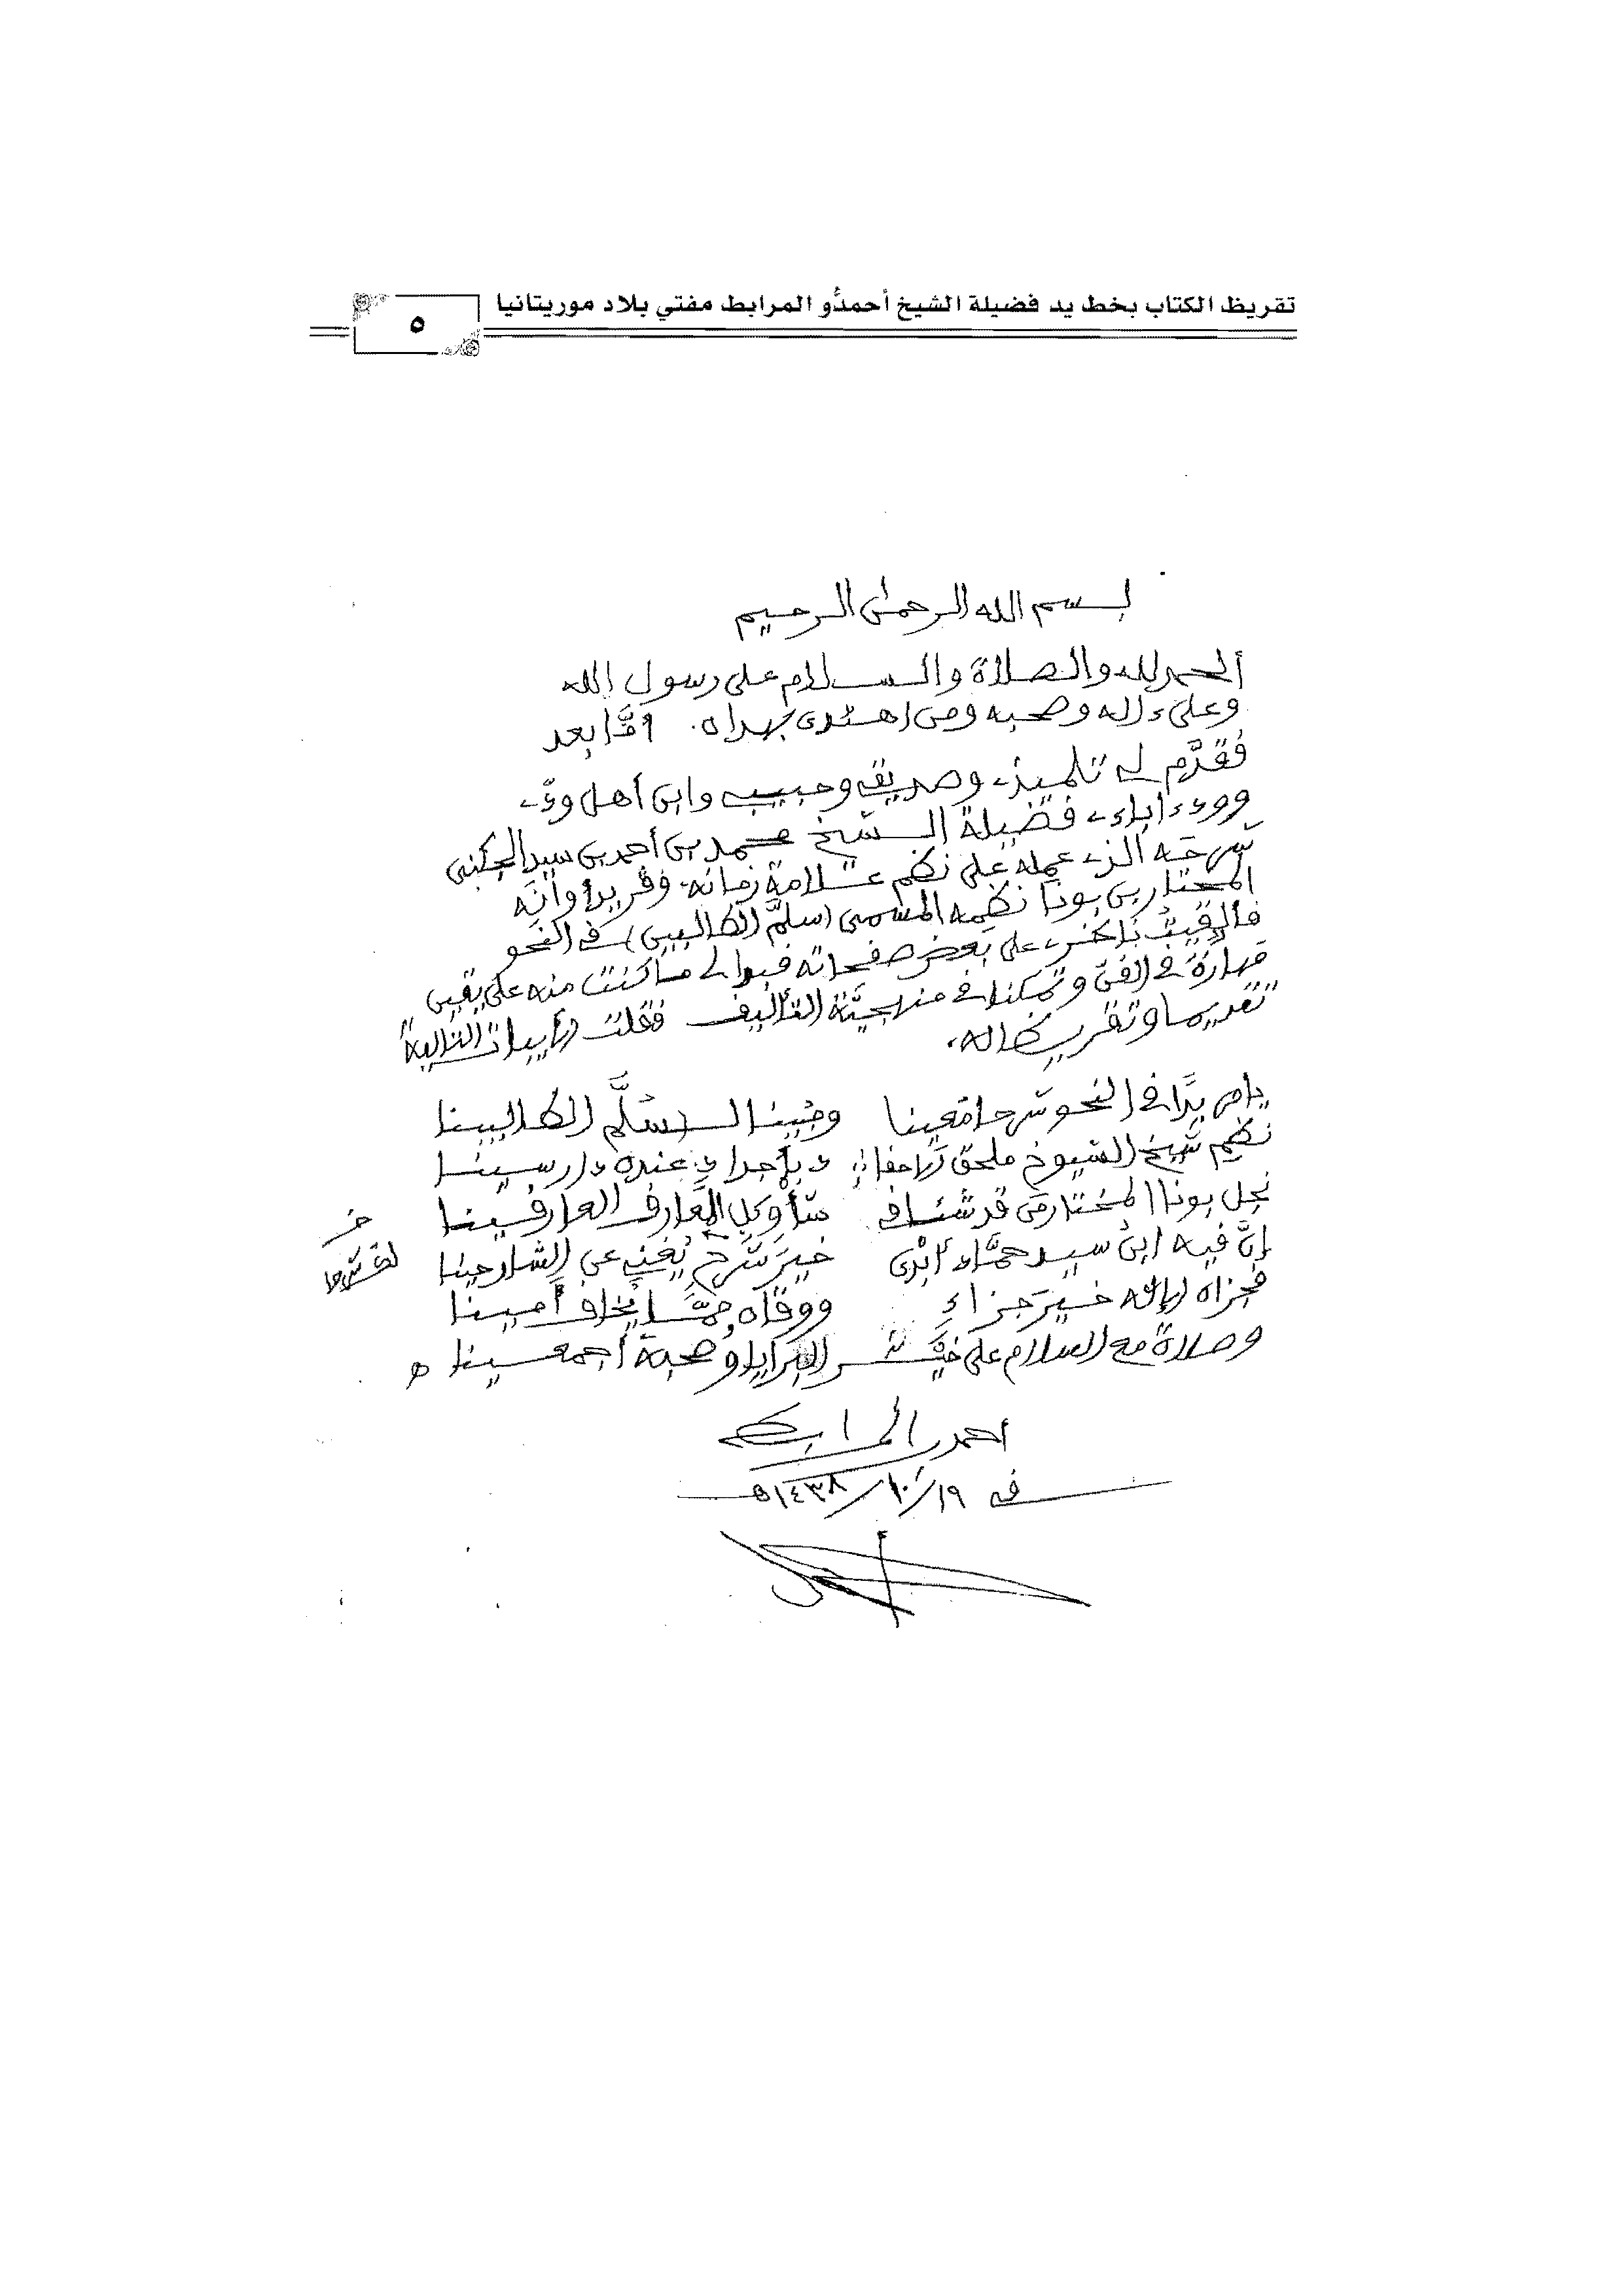 تقريظ الكتاب بخط يد فضيلة الشيخ أحمدُّو المرابط مفتي بلاد موريتانيا
٥
بسم الله الرحمٰن الرحيم
ألحمد لله والصلاة والسلام على رسول الله
وعلى ءاله وصحبه ومن اهتدى بهداه. أمَّا بعد
فقدَّم لي تلميذي وصديقي وحبيبي وابن أهل ودّي
وودء اباءي فضيلة الشيخ محمد بن أحمد بن سيد الجكني
شرحه الذي عمله على نظم علامة زمانه وفريد أوانه
المختار بن بونا نظمه المسمى (سلَّم الطالبين) في النحو
فألقيت ناظري على بعض صفحاته فبدا لي ما كنت منه على يقين
مهارة في الفن وتمكنا في منهجيَّة التأليف فقلت الأبيات التالية
تقديما وتقريظا له.
يا مريدًا في النحو شرحا معينا ومبينا لسُلَّم الطالبينا
نظم شيخ الشيوخ ملحق الأحفاد بأجداد عنده دارسينا
نجل بونا المختار من قد شئا في شأوه كل العارف العارفينا
إنَّ فيه ابن سيد حمَّاد أبدى خيرَ شرحٍ يُغني عن الشارحينا
فجزاه الإله خير جزاءٍ ووقاه ممَّا يخاف أمينا
وصلاة مع السلام على خير البرايا وصحبه أجمعينا ه
أحمد المرابط
في ١٩/١٠/١٤٣٨ه